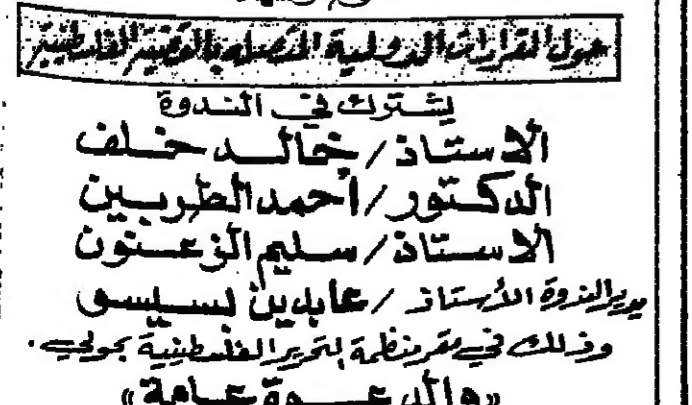 حول القرارات الدولية المتصلة بالقضية الفلسطينية
يشترك في الندوة
الاستاذ / خالد خلف
الدكتور / أحمد الطربين
الاستاذ / سليم الزعنون
يدير الندوة الأستاذ / عابدين بسيسو
وذلك في مقر منظمة التحرير الفلسطينية بحولي .
«والدعوة عامة»